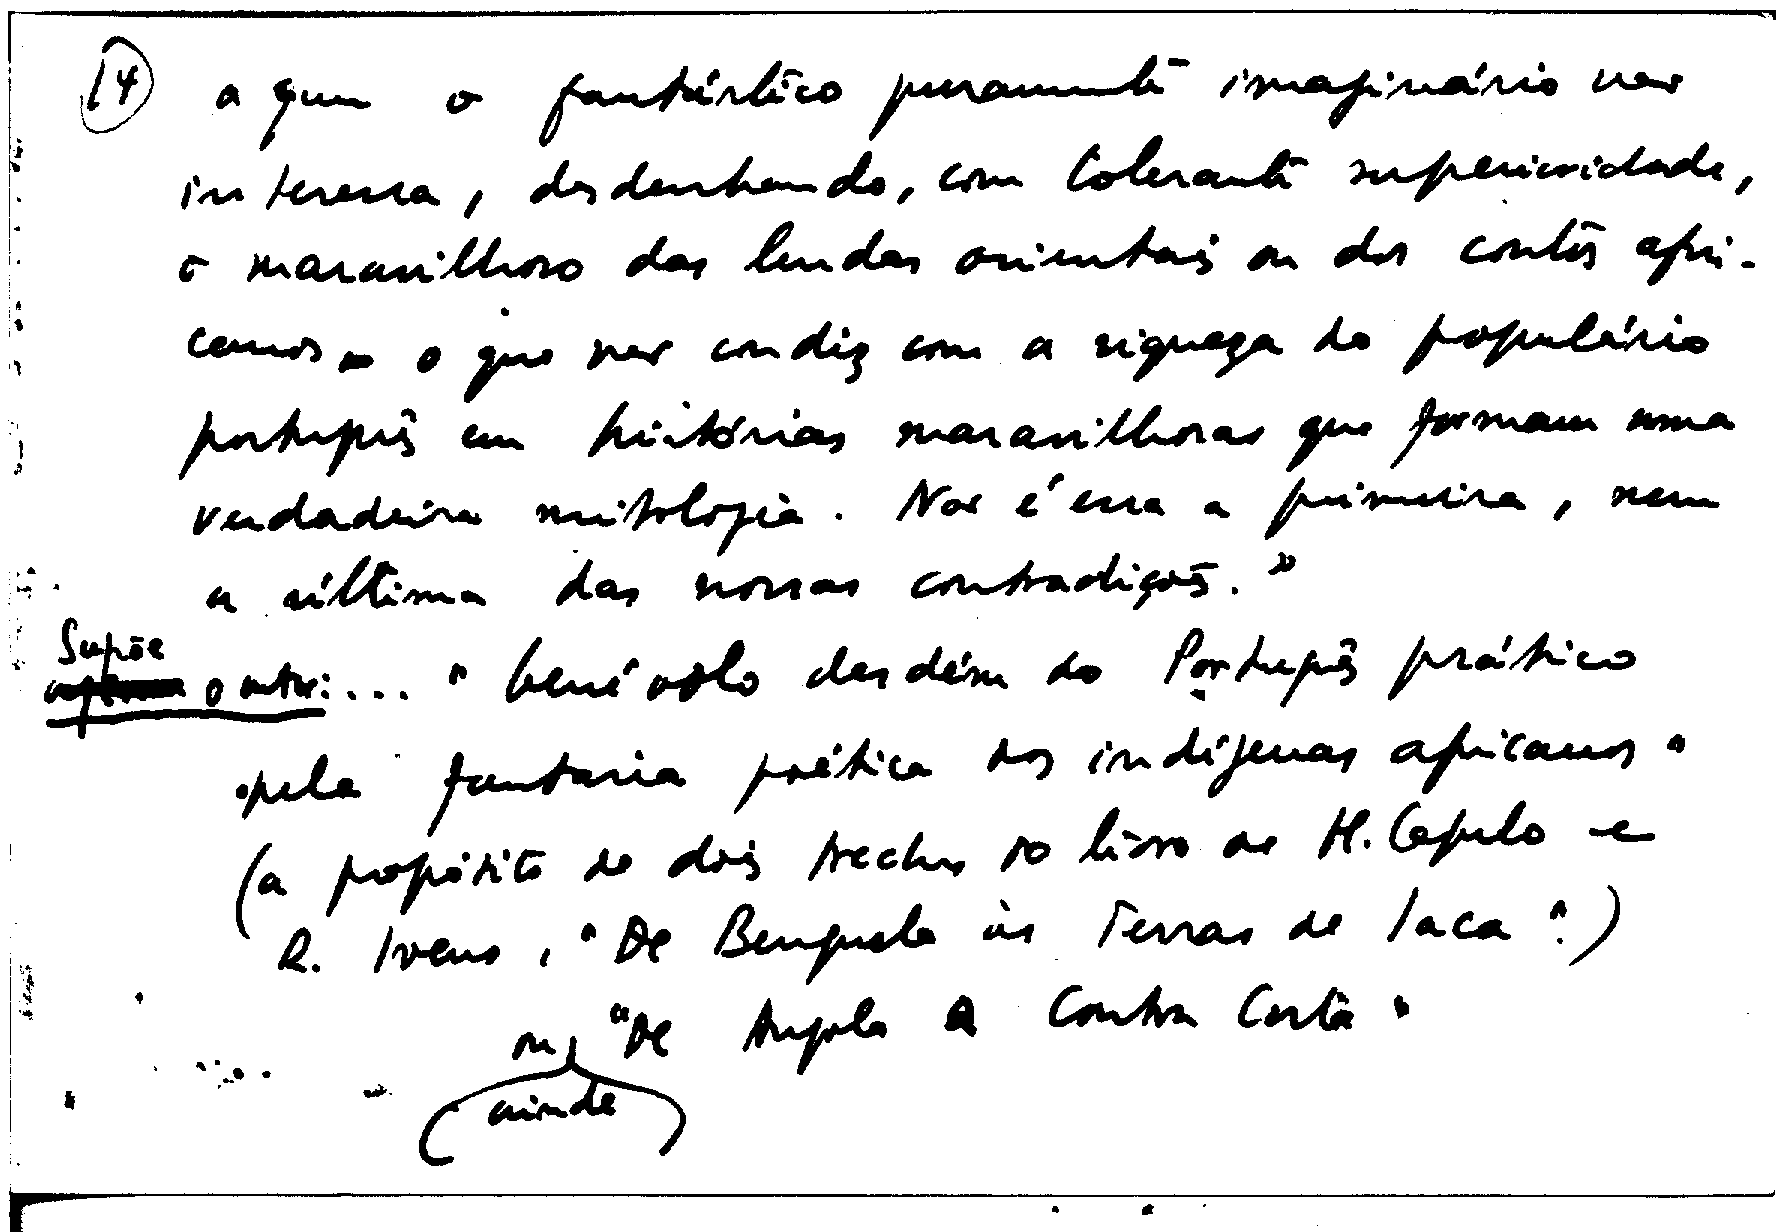 14
a quem o fantástico puramente imaginário não
interessa, desdenhando, com tolerante superioridade,
o maravilhoso das lendas orientais ou dos contos afri-
canos – o que não condiz com a riqueza do populário
português em histórias maravilhosas que formam uma
verdadeira mitologia. Não é essa a primeira, nem
a última das nossas contradições."
Supõe
o autor: ... "benévolo desdém do Português prático
pela fantasia poética dos indígenas africanos"
(a propósito de dois trechos do livro de H. Capelo e
R. Ivens, "De Benguela às Terras de Iaca".)
ou "De Angola à Contra Costa"
ainda